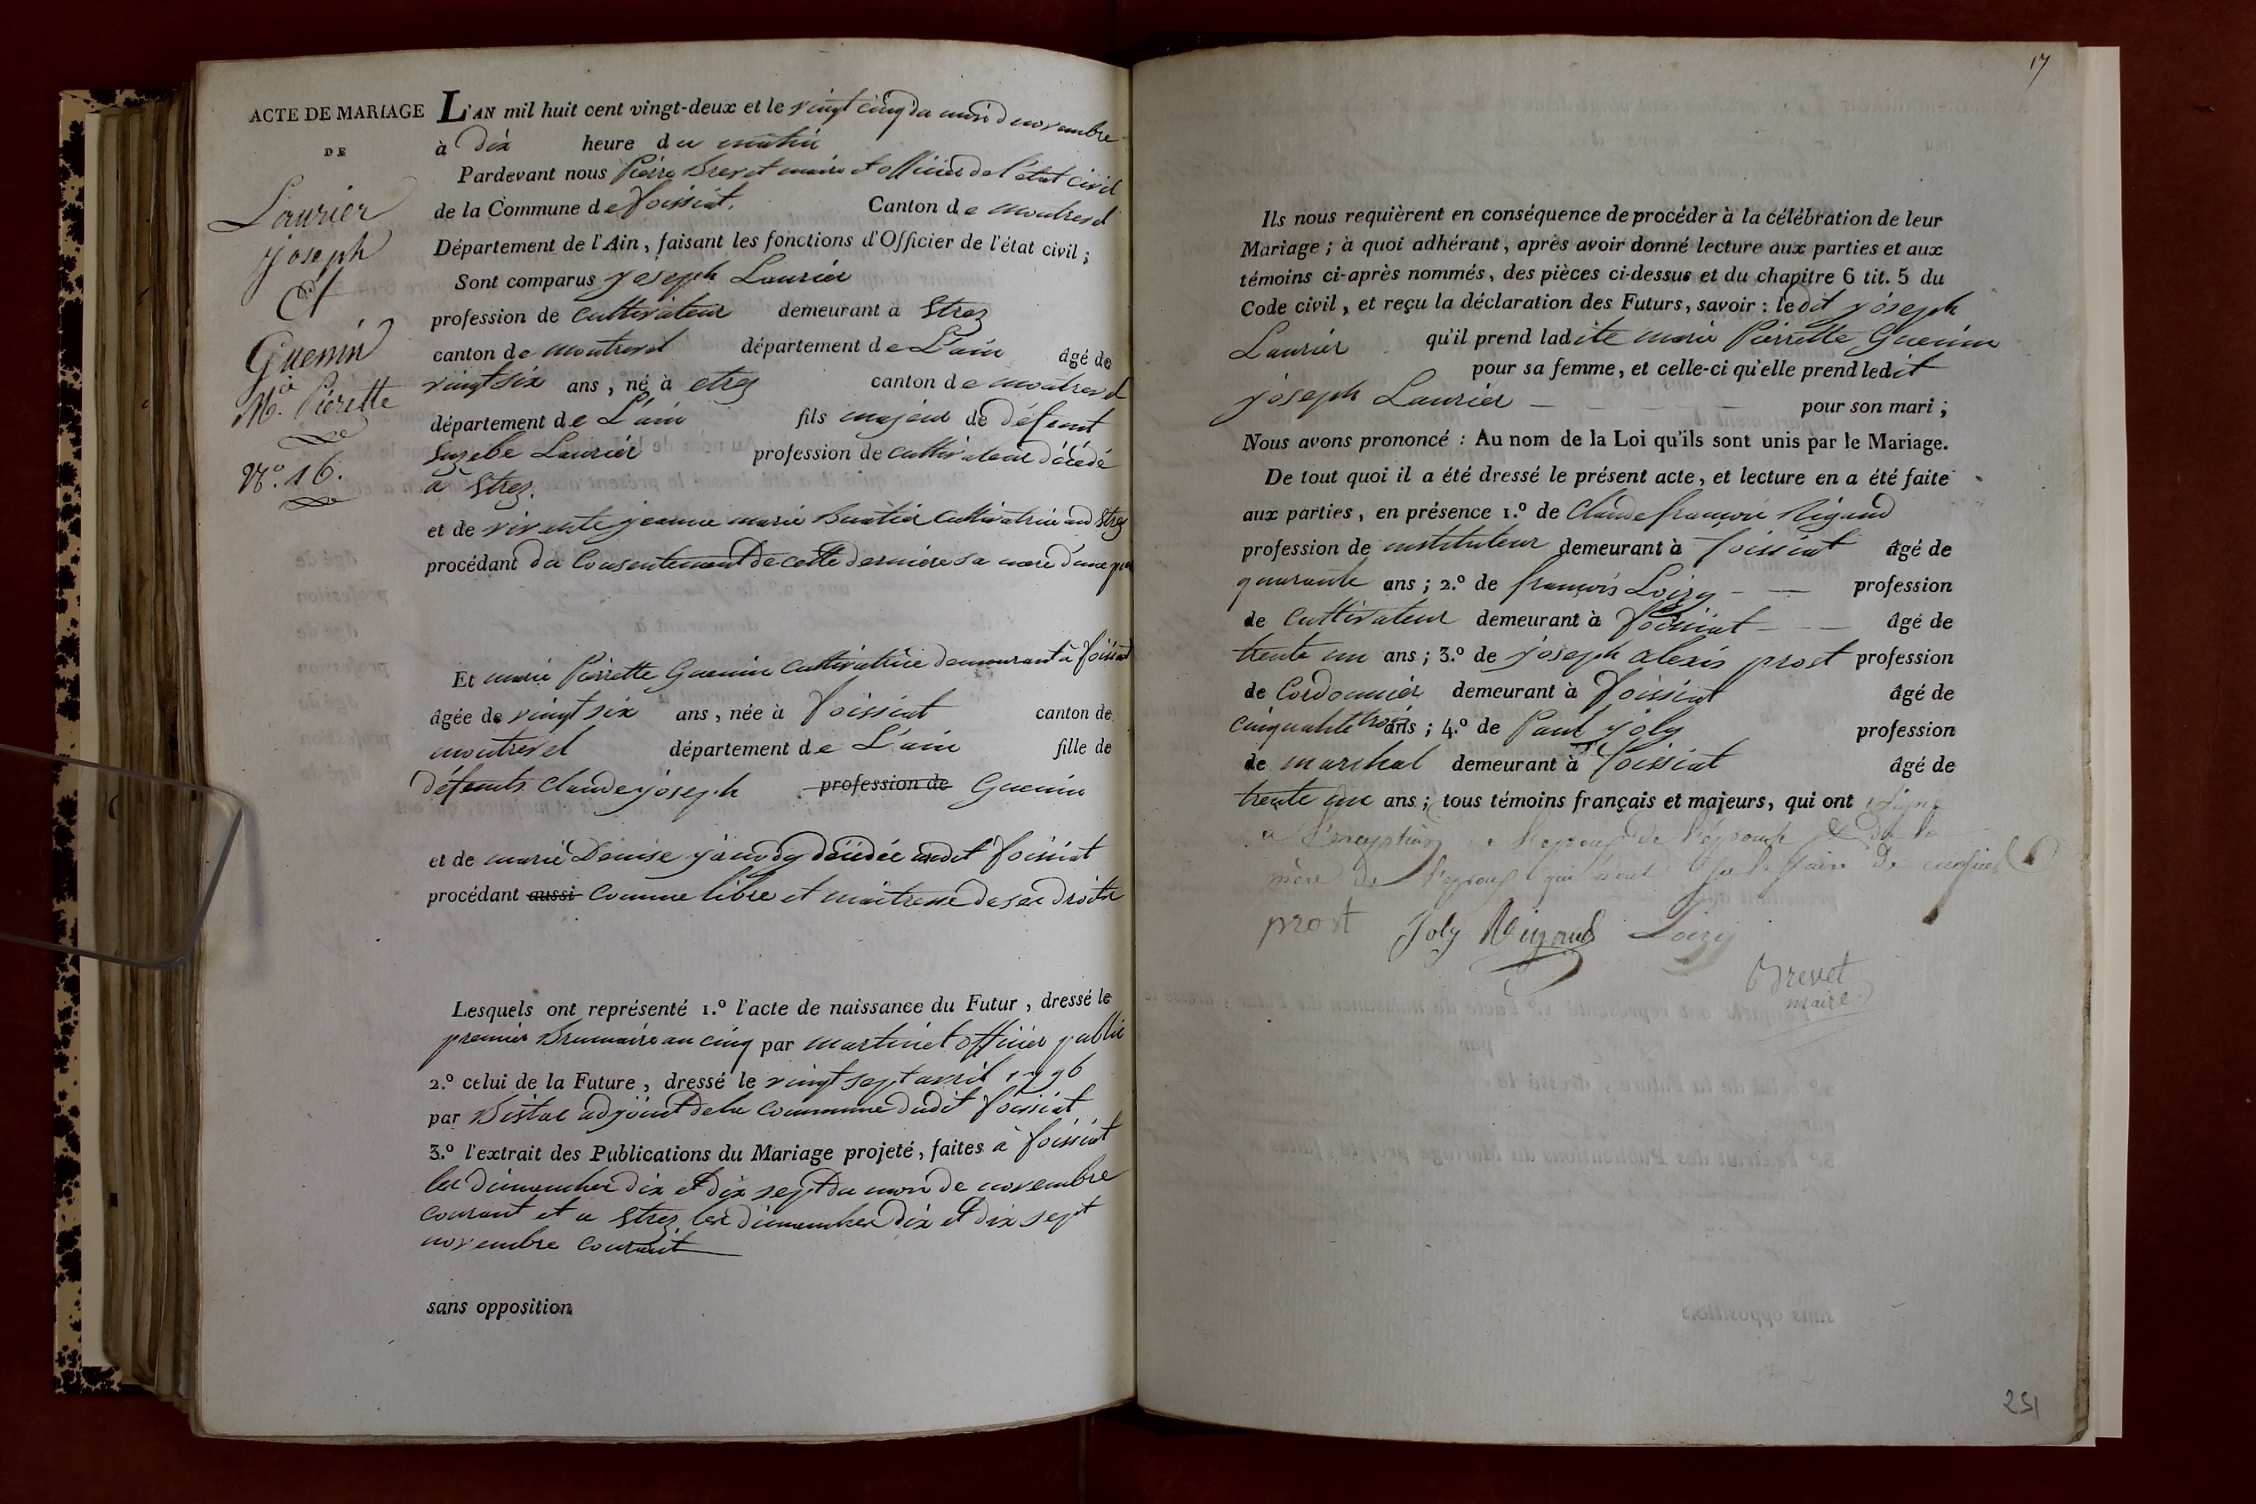 ACTE DE MARIAGE
DE
Laurier
joseph
Et
Guenin
M.ie Pierette
N.o 16.
L'AN mil huit cent vingt-deux et le vingt cinq du mois d novembre
à dix heure du matin
Pardevant nous Pierre Brevet maire et officier de l'état civil
de la Commune de foissiat. Canton de montrevel
Département de l'Ain, faisant les fonctions d'Officier de l'état civil;
Sont comparus joseph Laurier
profession de cultivateur demeurant à Etrez
canton de montrevel département de L'ain âgé de
vingt six ans, né à etrez canton de montrevel
département de L'ain fils majeur de défunt
Laurier profession de cultivateur décédé
à Etrez.
et de vivante jeanne marie Buatier cultivatrice aud Etrez
procédant du Consentement de cette dernière sa mere d'une part
Et marie Pierrette Guenin cultivatrice demeurant à foissiat
âgée de vingt six ans, née à foissiat canton de
montrevel département de L'ain fille de
défunts Claude joseph profession de Guenin
et de marie Denise décédée audit foissiat
procédant aussi comme libre et maitresse de ses droits
Lesquels ont représenté 1.º l'acte de naissance du Futur, dressé le
premier Brumaire an cinq par martinet officier public
2.º celui de la Future, dressé le vingt sept avril 1796
par adjoint de la commune dudit foissiat
3.º l'extrait des Publications du Mariage projeté, faites à foissiat
les dimanches dix et dix sept du mois de novembre
courant et a Etrez les dimanches dix et dix sept
novembre courant
sans opposition
17
Ils nous requièrent en conséquence de procéder à la célébration de leur
Mariage; à quoi adhérant, après avoir donné lecture aux parties et aux
témoins ci-après nommés, des pièces ci-dessus et du chapitre 6 tit. 5 du
Code civil, et reçu la déclaration des Futurs, savoir: ledit joseph
Laurier qu'il prend ladite marie Pierrette Guenin
pour sa femme, et celle-ci qu'elle prend ledit
joseph Laurier — — — — pour son mari;
Nous avons prononcé: Au nom de la Loi qu'ils sont unis par le Mariage.
De tout quoi il a été dressé le présent acte, et lecture en a été faite
aux parties, en présence 1.º de Claude françois Rigaud
profession de instituteur demeurant à foissiat âgé de
quarante ans; 2.º de françois Loizy — — profession
de Cultivateur demeurant à foissiat — — âgé de
trente un ans; 3.º de joseph alexis prost profession
de Cordonnier demeurant à foissiat âgé de
cinquante trois ans; 4.º de Paul joly profession
de marchal demeurant à foissiat âgé de
trente un ans; tous témoins français et majeurs, qui ont signé
a l'exception de l'epoux de l'epouse et de la
mère de l'epoux qui n'ont su le faire de
prost Joly Rigaud Loizy
Brevet
maire
251